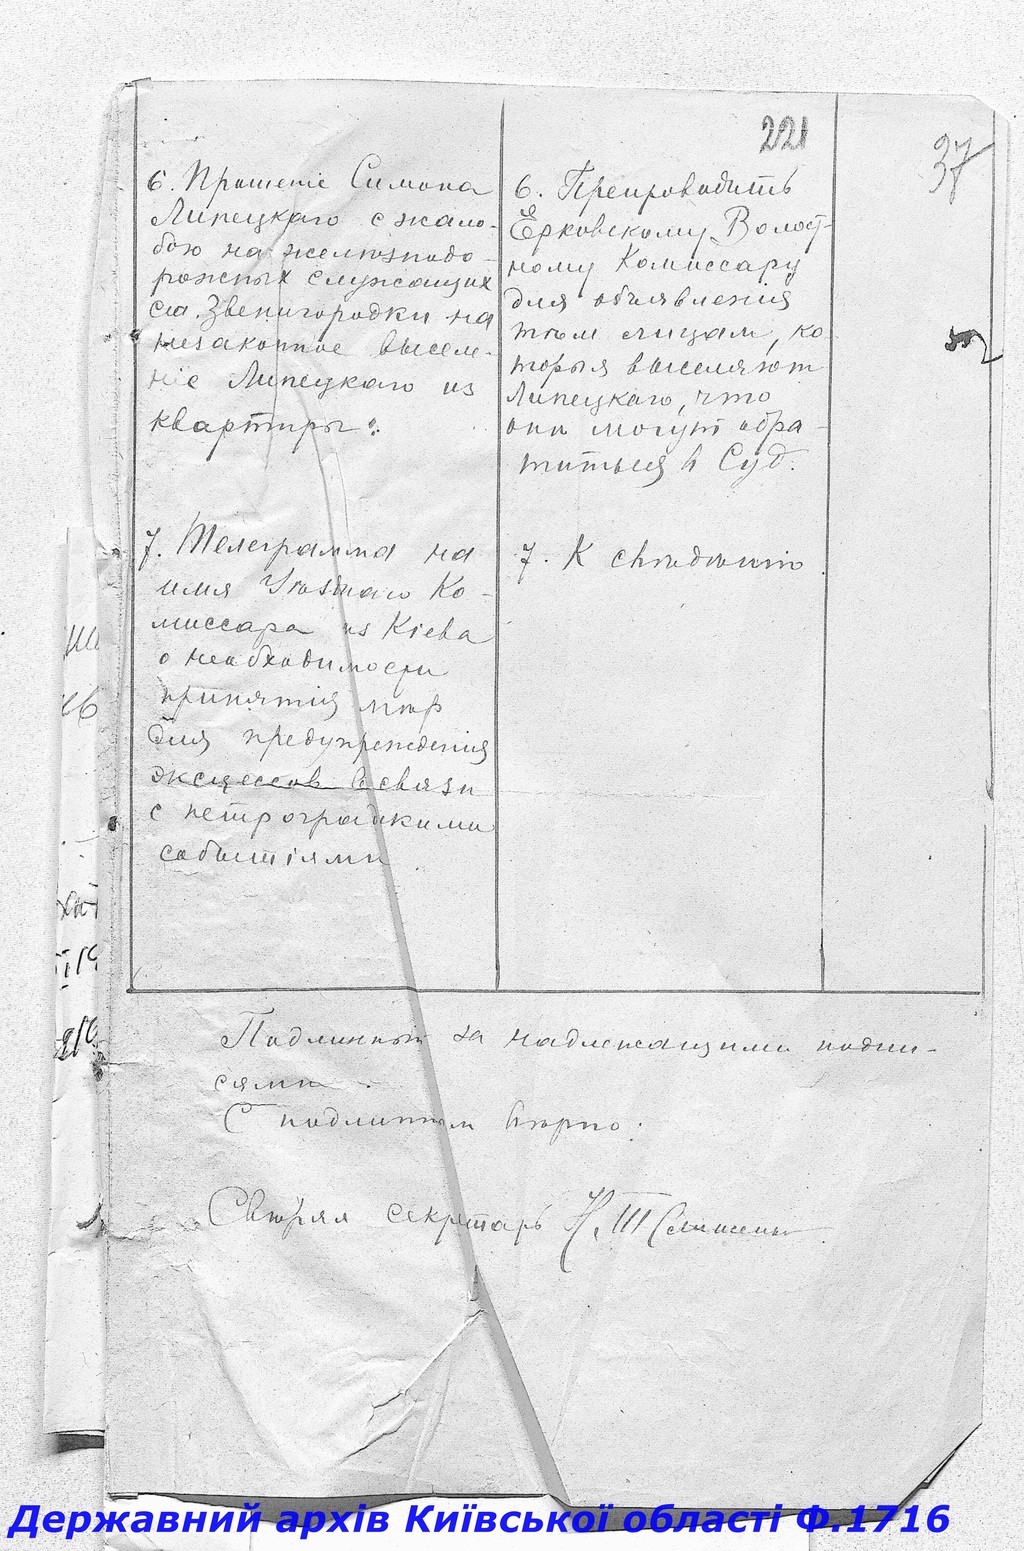 221
37
6. Прошеніе Симона
Липецкаго с жало-
бою на желѣзнодо-
рожных служащих
ст. Звенигородки на
незаконное выселе-
ніе Липецкаго из
квартиры.
6. Препроводить
Ерковскому Волост-
ному Комиссару
для объявленія
тѣм лицам, ко
торыя выселяют
Липецкаго, что
они могут обра-
титься в Суд.
7. Телеграмма на
имя Уѣзднаго Ко-
миссара из Кіева
о необходимости
принятія мѣр
для предупрежденія
эксцессов в связи
с петроградскими
событіями
7. К свѣдѣнію.
Подлинный за надлежащими подпи-
сями.
С подлинным вѣрно:
Свѣрял секретарь
Державний архів Київської області Ф.1716